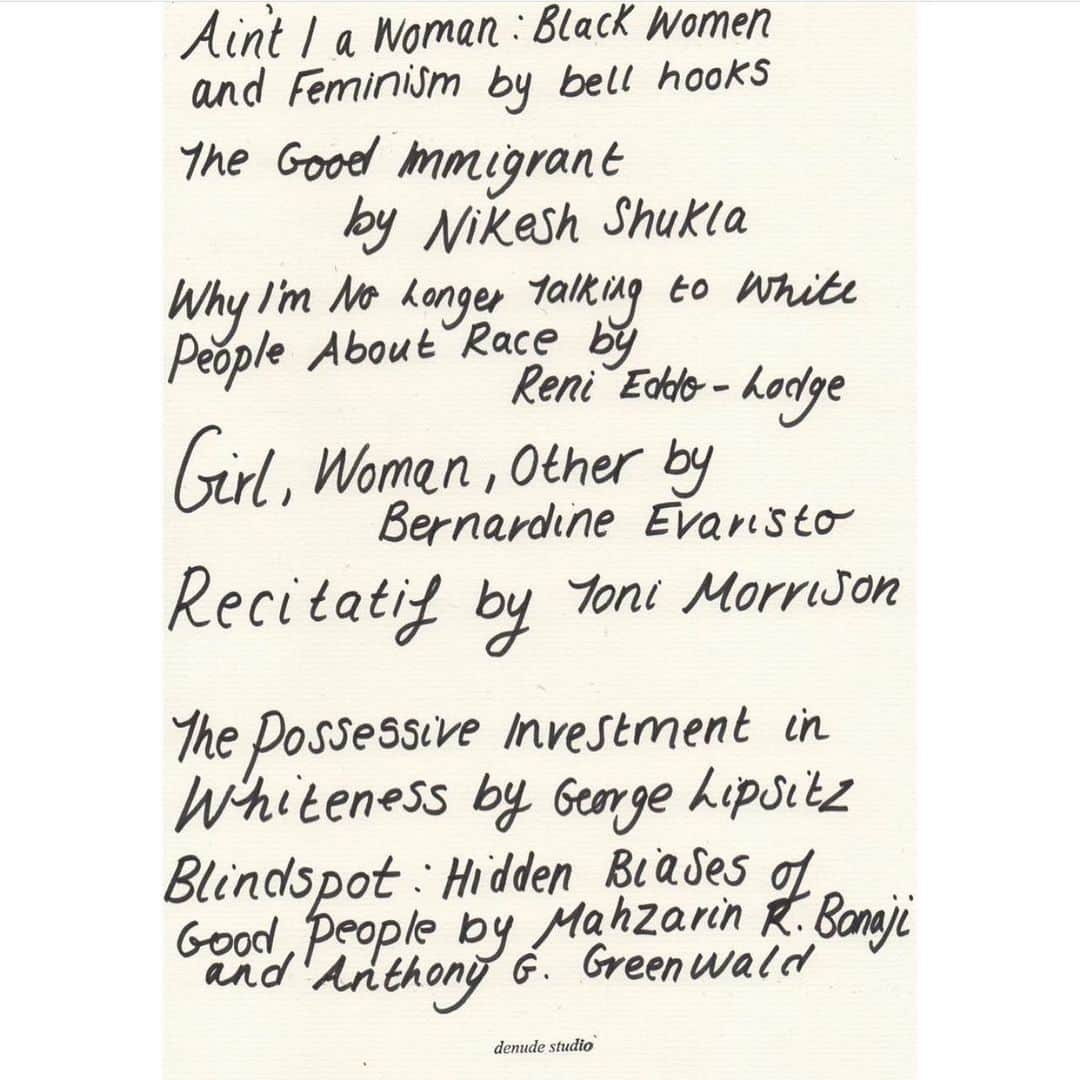 Ain't I a Woman : Black Women
and Feminism by bell hooks
The Good Immigrant
by Nikesh Shukla
Why I'm No Longer Talking to White
People About Race by
Reni Eddo-Lodge
Girl, Woman, Other by
Bernardine Evaristo
Recitatif by Toni Morrison
The Possessive Investment in
Whiteness by George Lipsitz
Blindspot : Hidden Biases of
Good People by Mahzarin R. Banaji
and Anthony G. Greenwald
denude studio